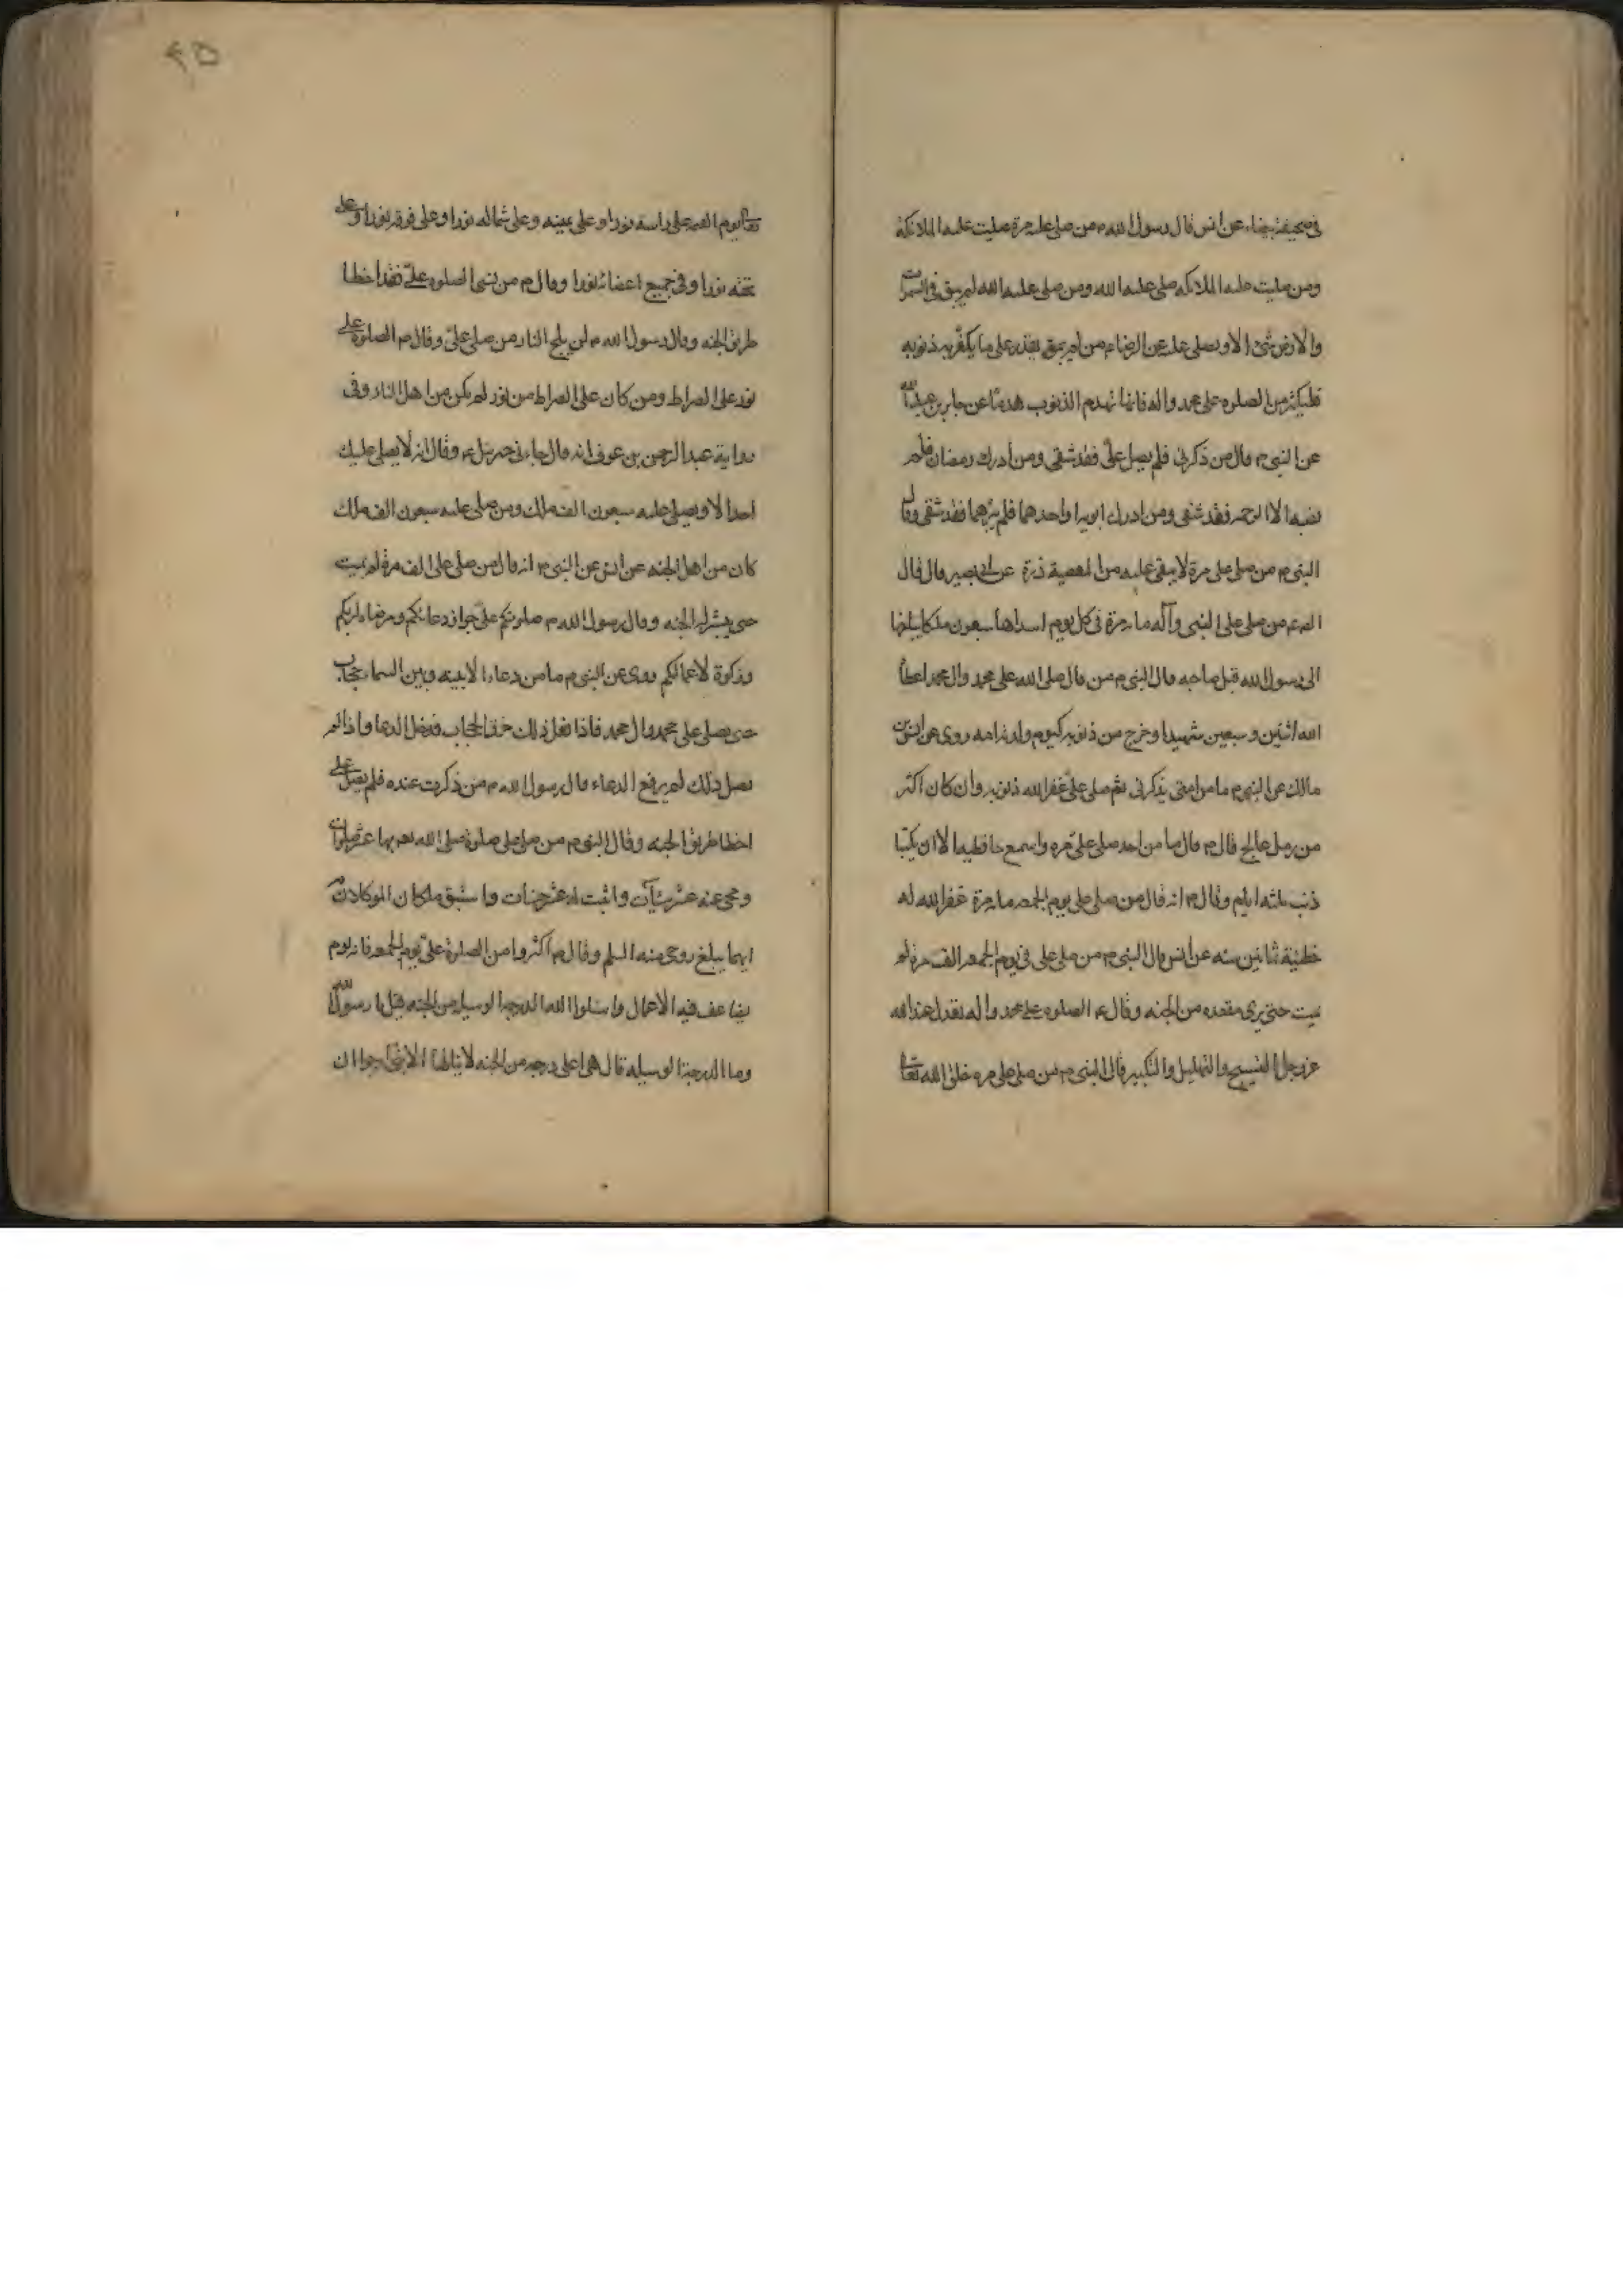 في صحيفة بيضاء عن انس قال رسول الله م من صلى علي مرة صليت عليه الملائكة
ومن صليت عليه الملائكه صلى عليه الله ومن صلى عليه الله لم يبق في السموات
والارض شئ الا ويصلي عليه عن الرضاء م من لم يقدر على ما يكفر به ذنوبه
فليكثر من الصلوه على محمد واله فانها تهدم الذنوب هدما عن جابر بن عبد الله
عن النبي م قال من ذكرني فلم يصل علي فقد شقي ومن أدرك رمضان فلم
الا الرحمه فقد شقي ومن ادرك ابويه او احدهما فلم يبرهما فقد شقي وقال
النبي م من صلى علي مرة لا يبقى عليه من المعصية ذرة عن ابي بصير قال قال
من صلى على النبي وآله مائه مرة في كل يوم سبعون ملكا يبلغها
الى رسول الله قبل صاحبه قال النبي م من قال صلى الله على محمد وال محمد اعطاه
الله اثنين وسبعين شهيدا وخرج من ذنوبه كيوم ولدته امه روى عن انس بن
مالك عن النبي م ما من امتي يذكرني ثم صلى علي غفر الله ذنوبه وان كان اكثر
من رمل عالج قال م قال ما من احد صلى علي مره واسمع حافظيه الا ان يكتبا
ذنبه ثلثه ايام وقال م انه قال من صلى علي يوم الجمعه مايه مرة غفر الله له
خطيئة ثمانين سنه عن انس قال النبي م من صلى علي في يوم الجمعه الف مرة لم
يمت حتى يرى مقعده من الجنه وقال ع الصلوه على محمد واله تعدل عند الله
عز وجل التسبيح والتهليل والتكبير قال النبي م من صلى علي مره خلق الله تعالى
تعالى يوم القيمه على راسه نورا وعلى يمينه وعلى شماله نورا وعلى فوقه نورا وعلى
تحته نورا وفي جميع اعضائه نورا وقال م من نسى الصلوه علي فقد اخطا
طريق الجنه وقال رسول الله م لن يلج النار من صلى علي وقال م الصلوة علي
نور على الصراط ومن كان على الصراط من نور لم يكن من اهل النار وفي
رواية عبد الرحمن بن عوف انه قال جاءني جبرئيل ع وقال انه لا يصلي عليك
احد الا ويصلي عليه سبعون الف ملك ومن صلى عليه سبعون الف ملك
كان من اهل الجنه عن انس عن النبي م انه قال من صلى علي الف مرة لم يمت
حتى يبشر له الجنه وقال رسول الله م صلوتكم علي جواز دعائكم ومرضاه لربكم
وزكوة لاعمالكم روى عن النبي م ما من دعاء الا بينه وبين السماء حجاب
حتى يصلي على محمد وال محمد فاذا فعل ذلك خرق الحجاب فدخل الدعا واذا لم
يفعل ذلك لم يرفع الدعاء قال رسول الله م من ذكرت عنده فلم يصل علي
اخطا طريق الجنه وقال النبي م من صلى علي صلوة صلى الله بها عشر صلوات
ومحى عنه عشر سيئات واثبت له عشر حسنات واستبق ملكان الموكلان
ايهما يبلغ روحي منه السلم وقال م اكثروا من الصلوة علي يوم الجمعه فانه يوم
يضاعف فيه الاعمال واسئلوا الله الدرجه الوسيله من الجنه قيل يا رسول الله
وما الدرجة الوسيله قال هي اعلى درجه من الجنه لا ينالها الا نبي ارجوا ان